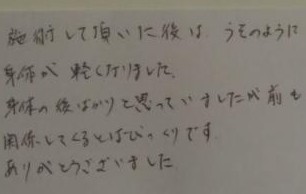 施術して頂いた後は、うそのように
身体が軽くなりました。
身体の後ばかりと思っていましたが前も
関係してくるとはびっくりです。
ありがとうございました